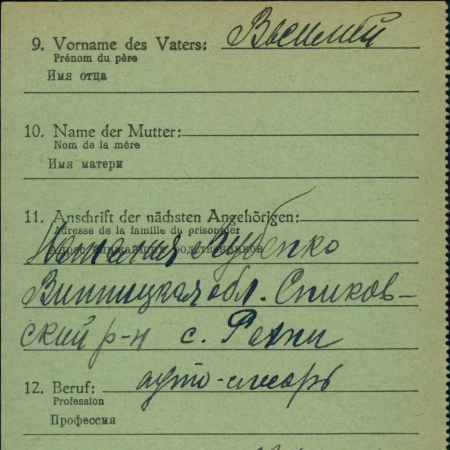 9. Vorname des Vaters: Василий
Prénom du père
Имя отца
10. Name der Mutter:
Nom de la mère
Имя матери
11. Anschrift der nächsten Angehörigen:
Adresse de la famille du prisonnier
Наталия Лубенко
Винницкая обл. Спиков-
ский р-н с. Рахни
12. Beruf: авто-слесарь
Profession
Профессия